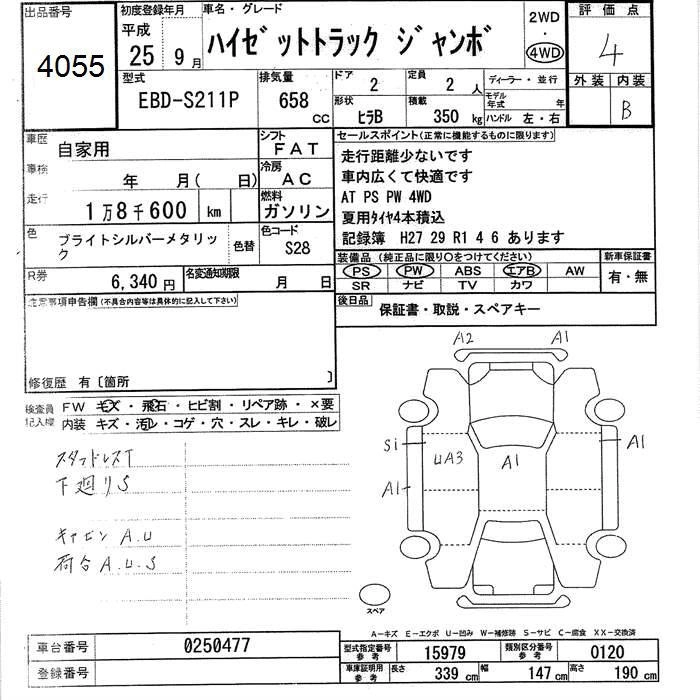 出品番号
4055
初度登録年月
平成
25 9月
車名・グレード
ハイゼットトラック ジャンボ
2WD
・
4WD
評価点
4
外装 内装
B
型式
EBD-S211P
排気量
658
cc
ドア
2
定員
2人
ディーラー・並行
形状
ヒラB
積載
350 kg
モデル年式 年
ハンドル 左・右
車歴
自家用
シフト
FAT
車検
年 月( 日)
冷房
AC
走行
1万8千600 km
燃料
ガソリン
色
ブライトシルバーメタリック
色替
色コード
S28
R券
6,340円
名変通知期限
月 日
セールスポイント(正常に機能するものに限ります)
走行距離少ないです
車内広くて快適です
AT PS PW 4WD
夏用タイヤ4本積込
記録簿 H27 29 R1 4 6 あります
装備品(純正品に限り○をつけてください)
PS PW ABS エアB AW
SR ナビ TV カワ
新車保証書
有・無
後日品
保証書・取説・スペアキー
注意事項申告欄(不具合内容等は具体的に記入して下さい)
修復歴 有〔箇所 〕
検査員記入欄
FW キズ・飛石・ヒビ割・リペア跡・×要
内装 キズ・汚レ・コゲ・穴・スレ・キレ・破レ
スタッドレスT
下廻りS
キャビン A.U
荷台 A.U.S
A2
A1
Si
UA3
A1
A1
A1
スペア
A-キズ E-エクボ U-凹み W-補修跡 S-サビ C-腐食 XX-交換済
車台番号
0250477
登録番号
型式指定番号
参考
15979
類別区分番号
参考
0120
車庫証明用
参考
長さ
339 cm
幅
147 cm
高さ
190 cm